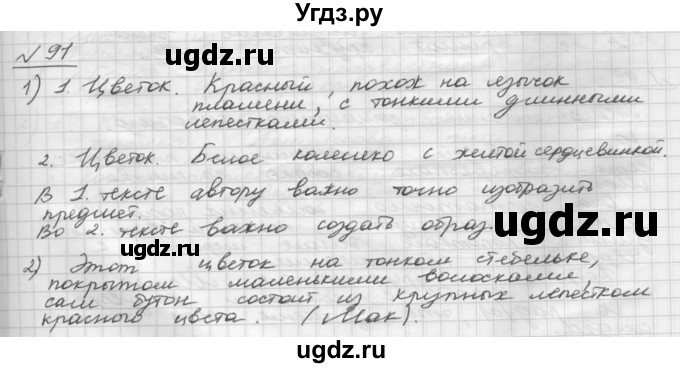 Угдз.ру
№ 91
1) 1. Цветок. Красный, похож на язычок
пламени, с тонкими длинными
лепестками.
2. Цветок. Белое колесико с желтой сердцевинкой.
В 1. тексте автору важно точно изобразить
предмет.
Во 2. тексте важно создать образ.
2) Этот цветок на тонком стебельке,
покрытом маленькими волосками,
сам бутон состоит из крупных лепестком
красного цвета. (Мак).
ugdz.ru
ugdz.ru
ugdz.ru
ugdz.ru
ugdz.ru